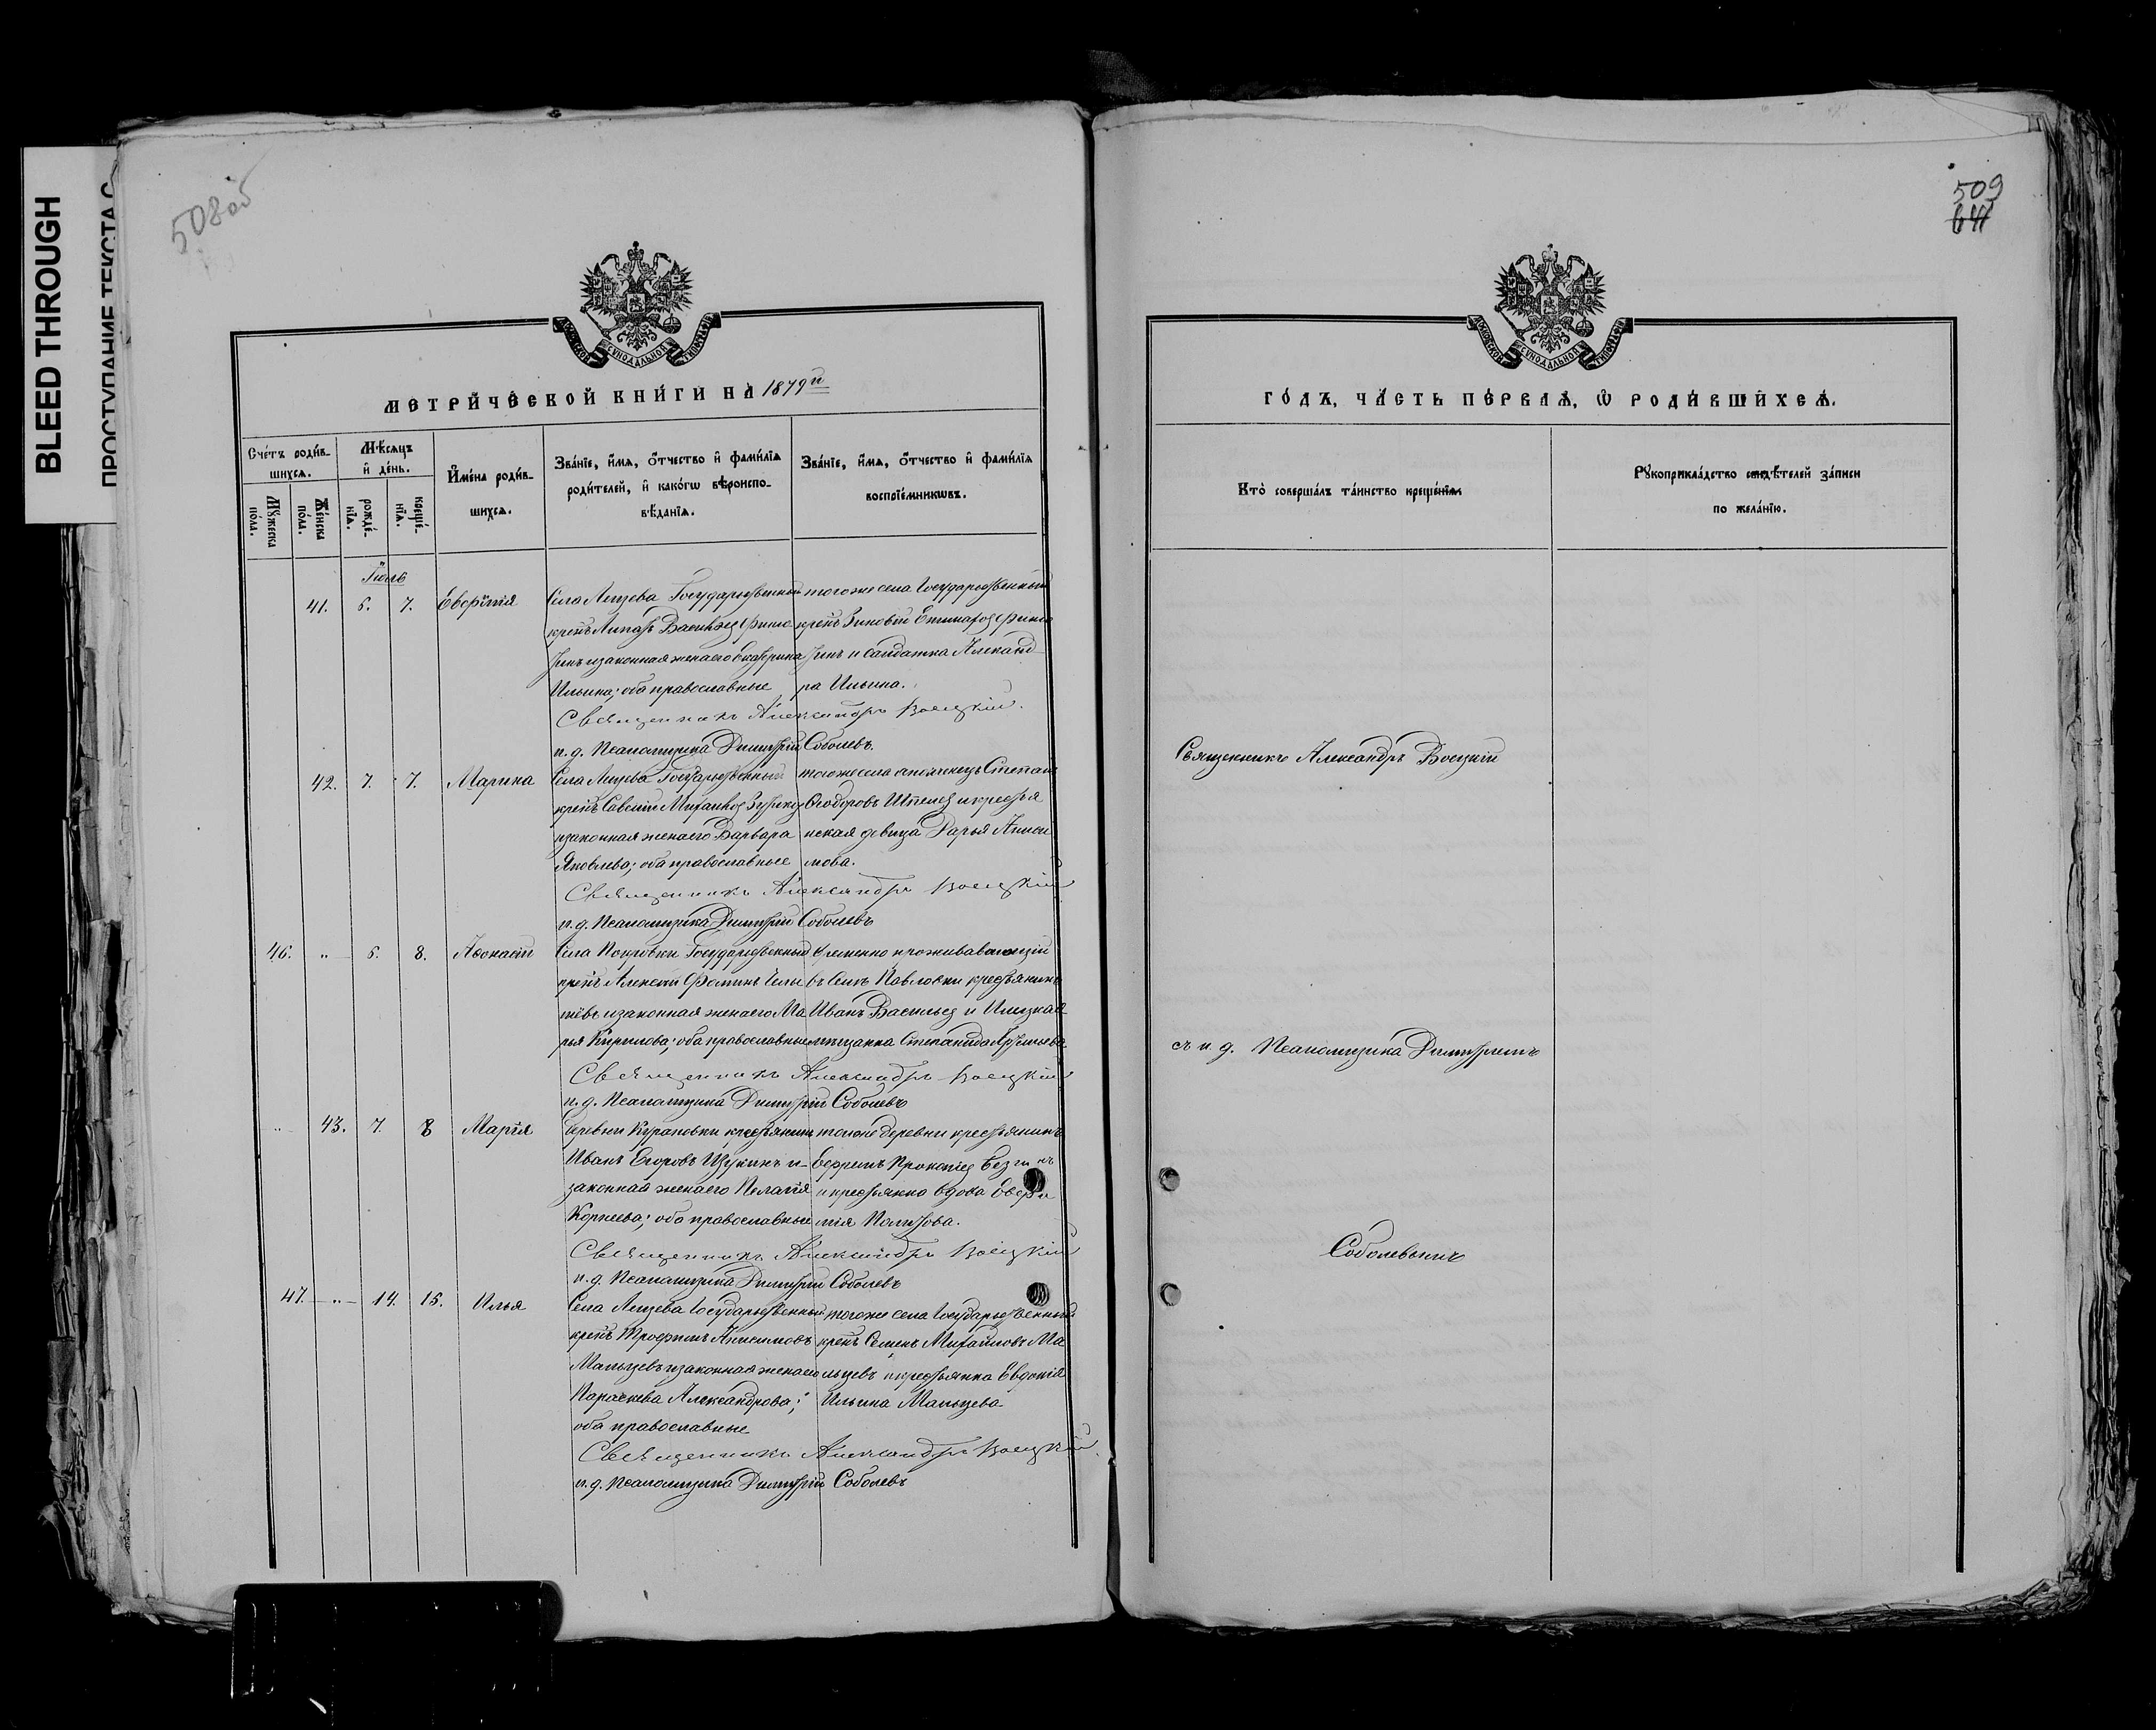 BLEED THROUGH
ПРОСТУПАНИЕ ТЕКСТА С
508 об
МОСКОВСКОЙ СѴНОДАЛЬНОЙ ТИПОГРАФІИ
МЕТРИ́ЧЕСКОЙ КНИ́ГИ НА 1879й
Сче́тъ роди́в-
шихсѧ.
Мѣ́сѧцъ
и҆ де́нь.
И҆мена̀ роди́в-
шихсѧ.
Зва́нїе, и҆́мѧ, ѻ҆́тчество и҆ фами́лїѧ
роди́телей, и҆ како́гѡ вѣроиспо-
вѣ́данїѧ.
Зва́нїе, и҆́мѧ, ѻ҆́тчество и҆ фами́лїѧ
воспрїе́мникѡвъ.
Мꙋ́жеска
по́ла.
Же́нска
по́ла.
рожде́-
нїѧ.
креще́-
нїѧ.
Іюль
41. 6. 7. Евфимія
Села Государственный
крест. Василіев
и законная жена его Екатерина
Ильина; оба православные
тогоже села Государственный
крест. Зиновій
и салдатка Александ
ра Ильина.
Священникъ Александръ Воецкій.
и. д. Псаломщика Димитрій Соболевъ.
42. 7. 7. Марина
Села Государственный
крест. Савелій Михаилов
и законная жена его Варвара
Яковлева; оба православные
тогоже села Степан
Ѳеодоровъ и крестья
нская девица Дарья Аниси
мова.
Священникъ Александръ Воецкій
и. д. Псаломщика Димитрій Соболевъ
46. „ 6. 8. Аѳонасій
Села Покровки Государственный
крест. Алексій Фоминъ
и законная жена его Ма
рія Кирилова; оба православные
временно проживавающій
въ Селѣ Павловки крестьянинъ
Иванъ Васильев и
мещанка Степанида
Священникъ Александръ Воецкій
и. д. Псаломщика Димитрій Соболевъ
„ 43. 7. 8 Марія
Деревни крестьянинъ
Иванъ Егоровъ Щукинъ и
законная жена его Пелагія
Корнеева; оба православные
тогоже деревни крестьянинъ
Ефремъ Прокопіев
и крестьянка вдова Евфи
мія
Священникъ Александръ Воецкій
и. д. Псаломщика Димитрій Соболевъ
47. „ 14. 15. Илья
Села Государственный
крест. Трофимъ Анисимовъ
Мальцевъ и законная жена его
Параскева Александрова;
оба православные
тогоже села Государственный
крест. Семенъ Михаиловъ Ма
льцевъ и крестьянка Евдокія
Ильина Мальцева
Священникъ Александръ Воецкій
и. д. Псаломщика Димитрій Соболевъ
509
МОСКОВСКОЙ СѴНОДАЛЬНОЙ ТИПОГРАФІИ
ГО́ДЪ, ЧА́СТЬ ПЕ́РВАѦ, Ѡ҆ РОДИ́ВШИХСѦ.
Кто̀ соверша́лъ та́инство креще́нїѧ.
Рꙋкоприкла́дство свидѣ́телей за́писи
по жела́нїю.
Священникъ Александръ Воецкій
съ и. д. Псаломщика Димитріемъ
Соболевымъ